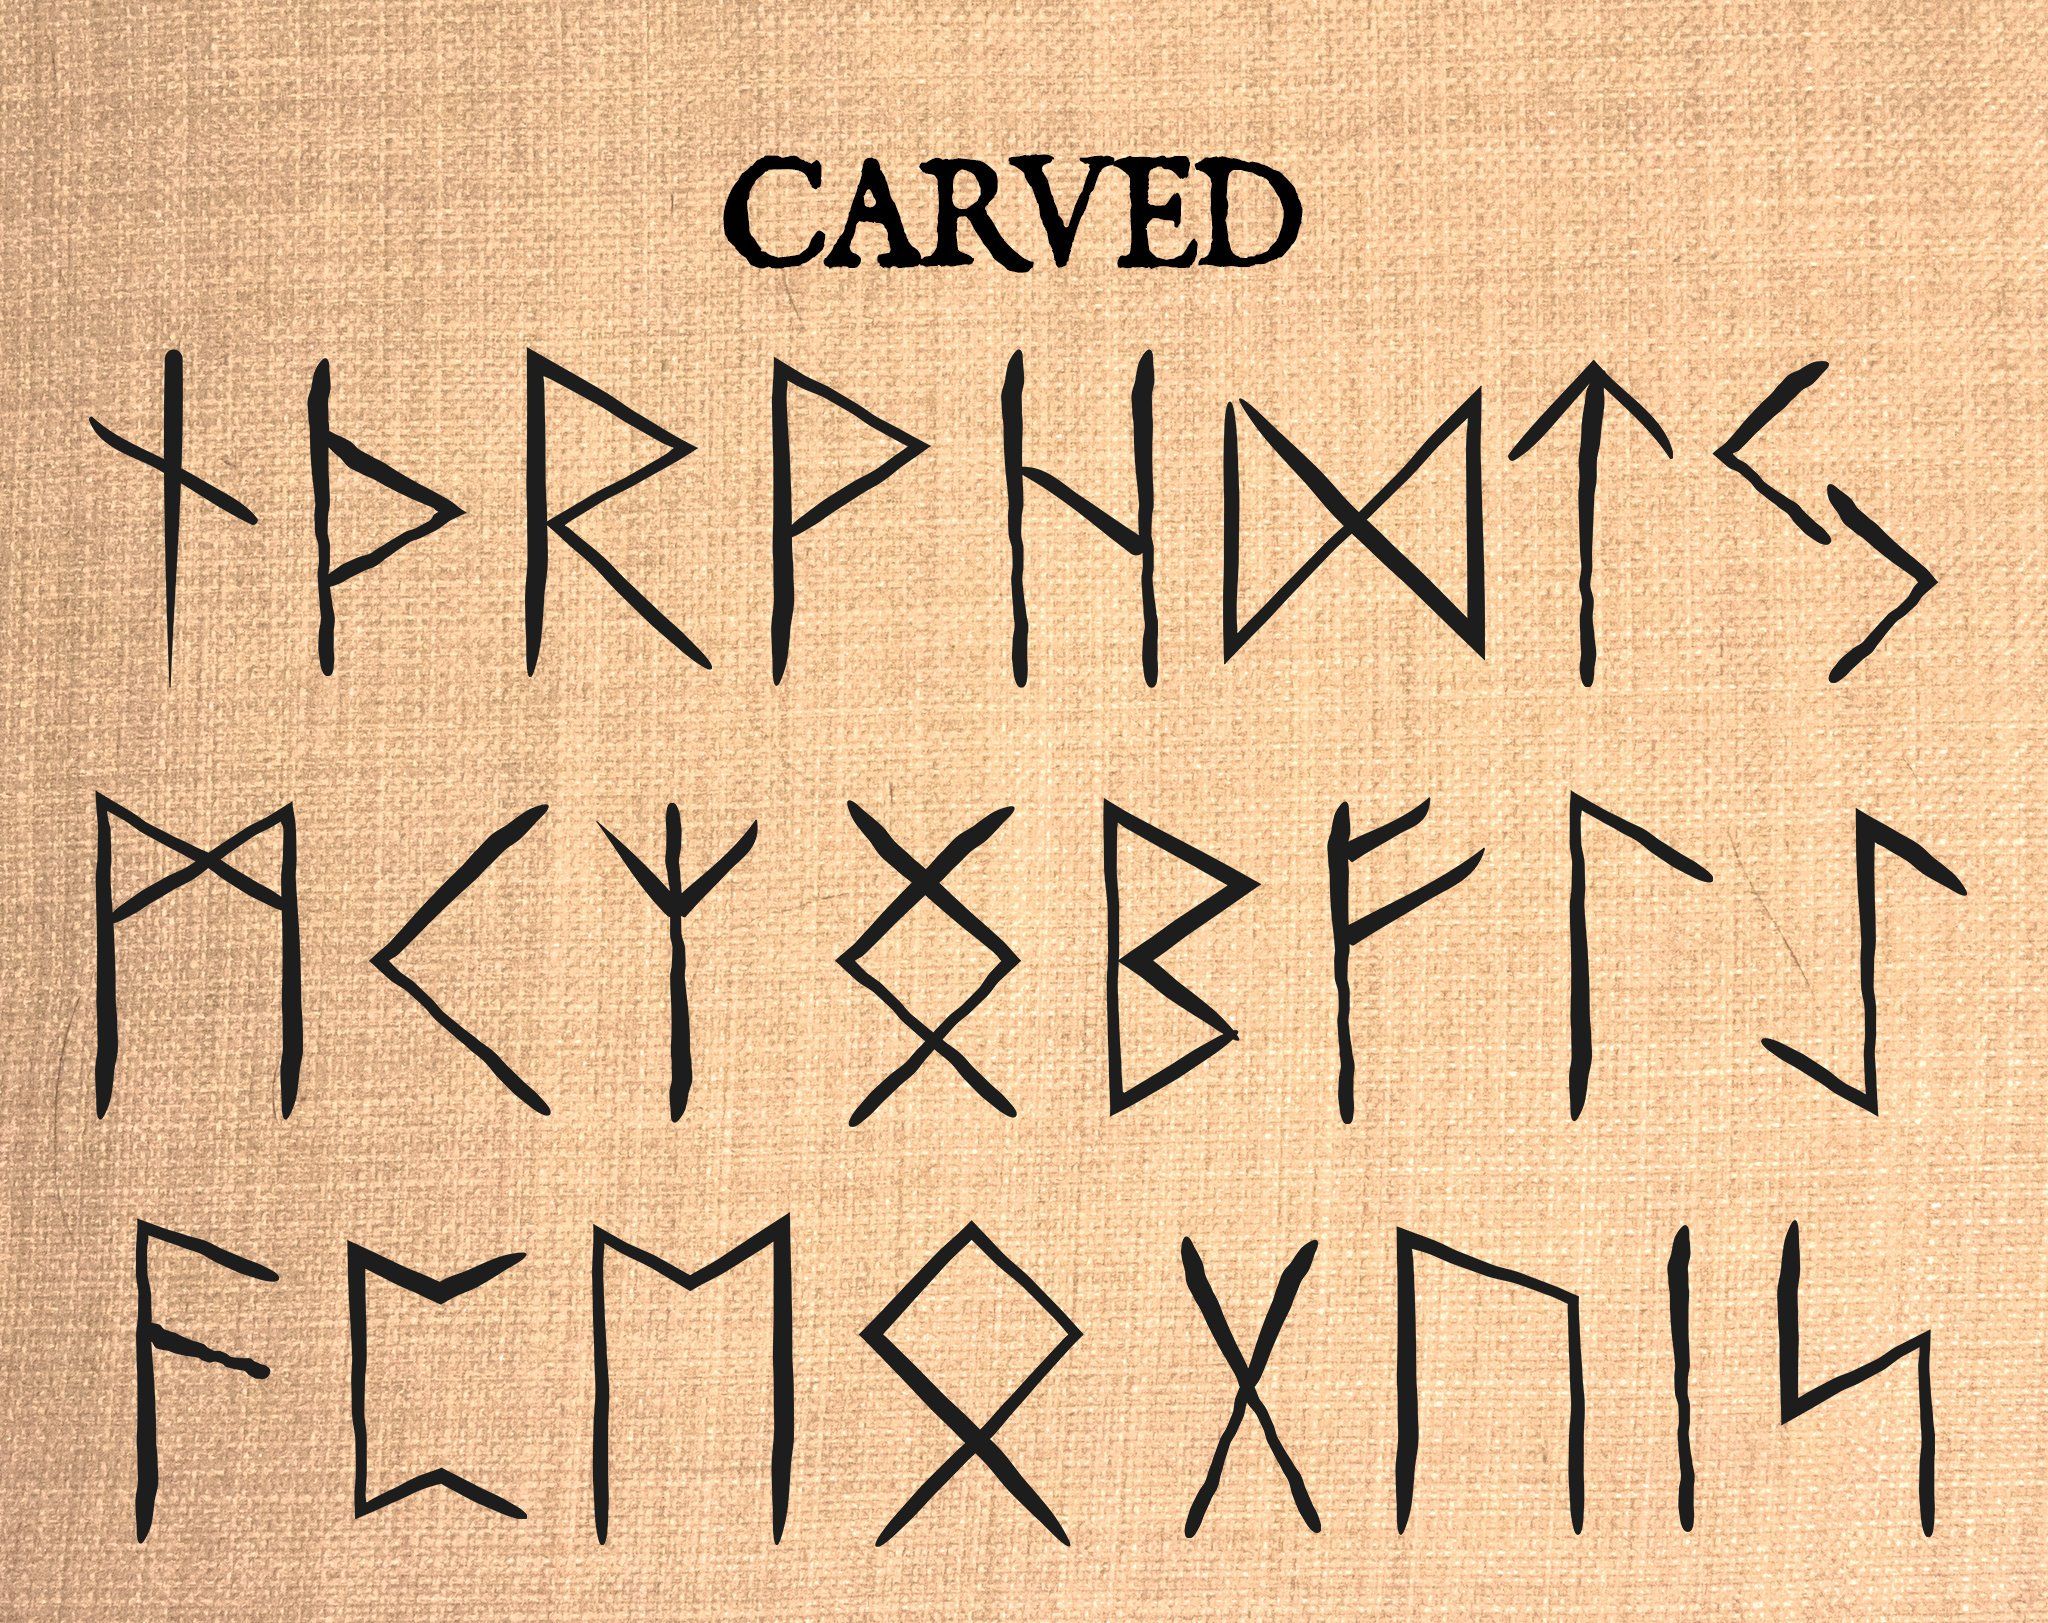 CARVED
ᚾ ᚦ ᚱ ᚹ ᚺ ᛞ ᛏ ᛃ
ᛗ ᚲ ᛉ ᛝ ᛒ ᚠ ᛚ ᛇ
ᚨ ᛈ ᛖ ᛟ ᚷ ᚢ ᛁ ᛋ